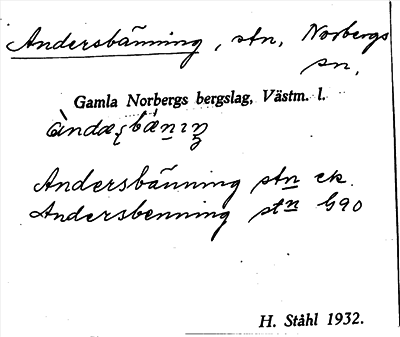 Andersbänning, stn, Norbergs
sn,
Gamla Norbergs bergslag, Västm. l.
Andersbänning stn ek.
Andersbenning stn G90
H. Ståhl 1932.